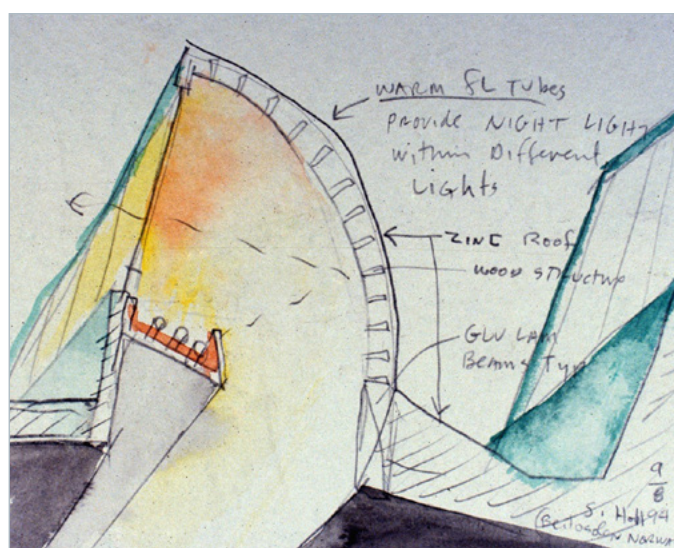 WARM FL TUBES
PROVIDE NIGHT LIGHT
within Different
Lights
ZINC ROOF
WOOD STRUCTURE
GLU LAM
BEAMS Typ
9
8
S. Holl 94
NORWAY